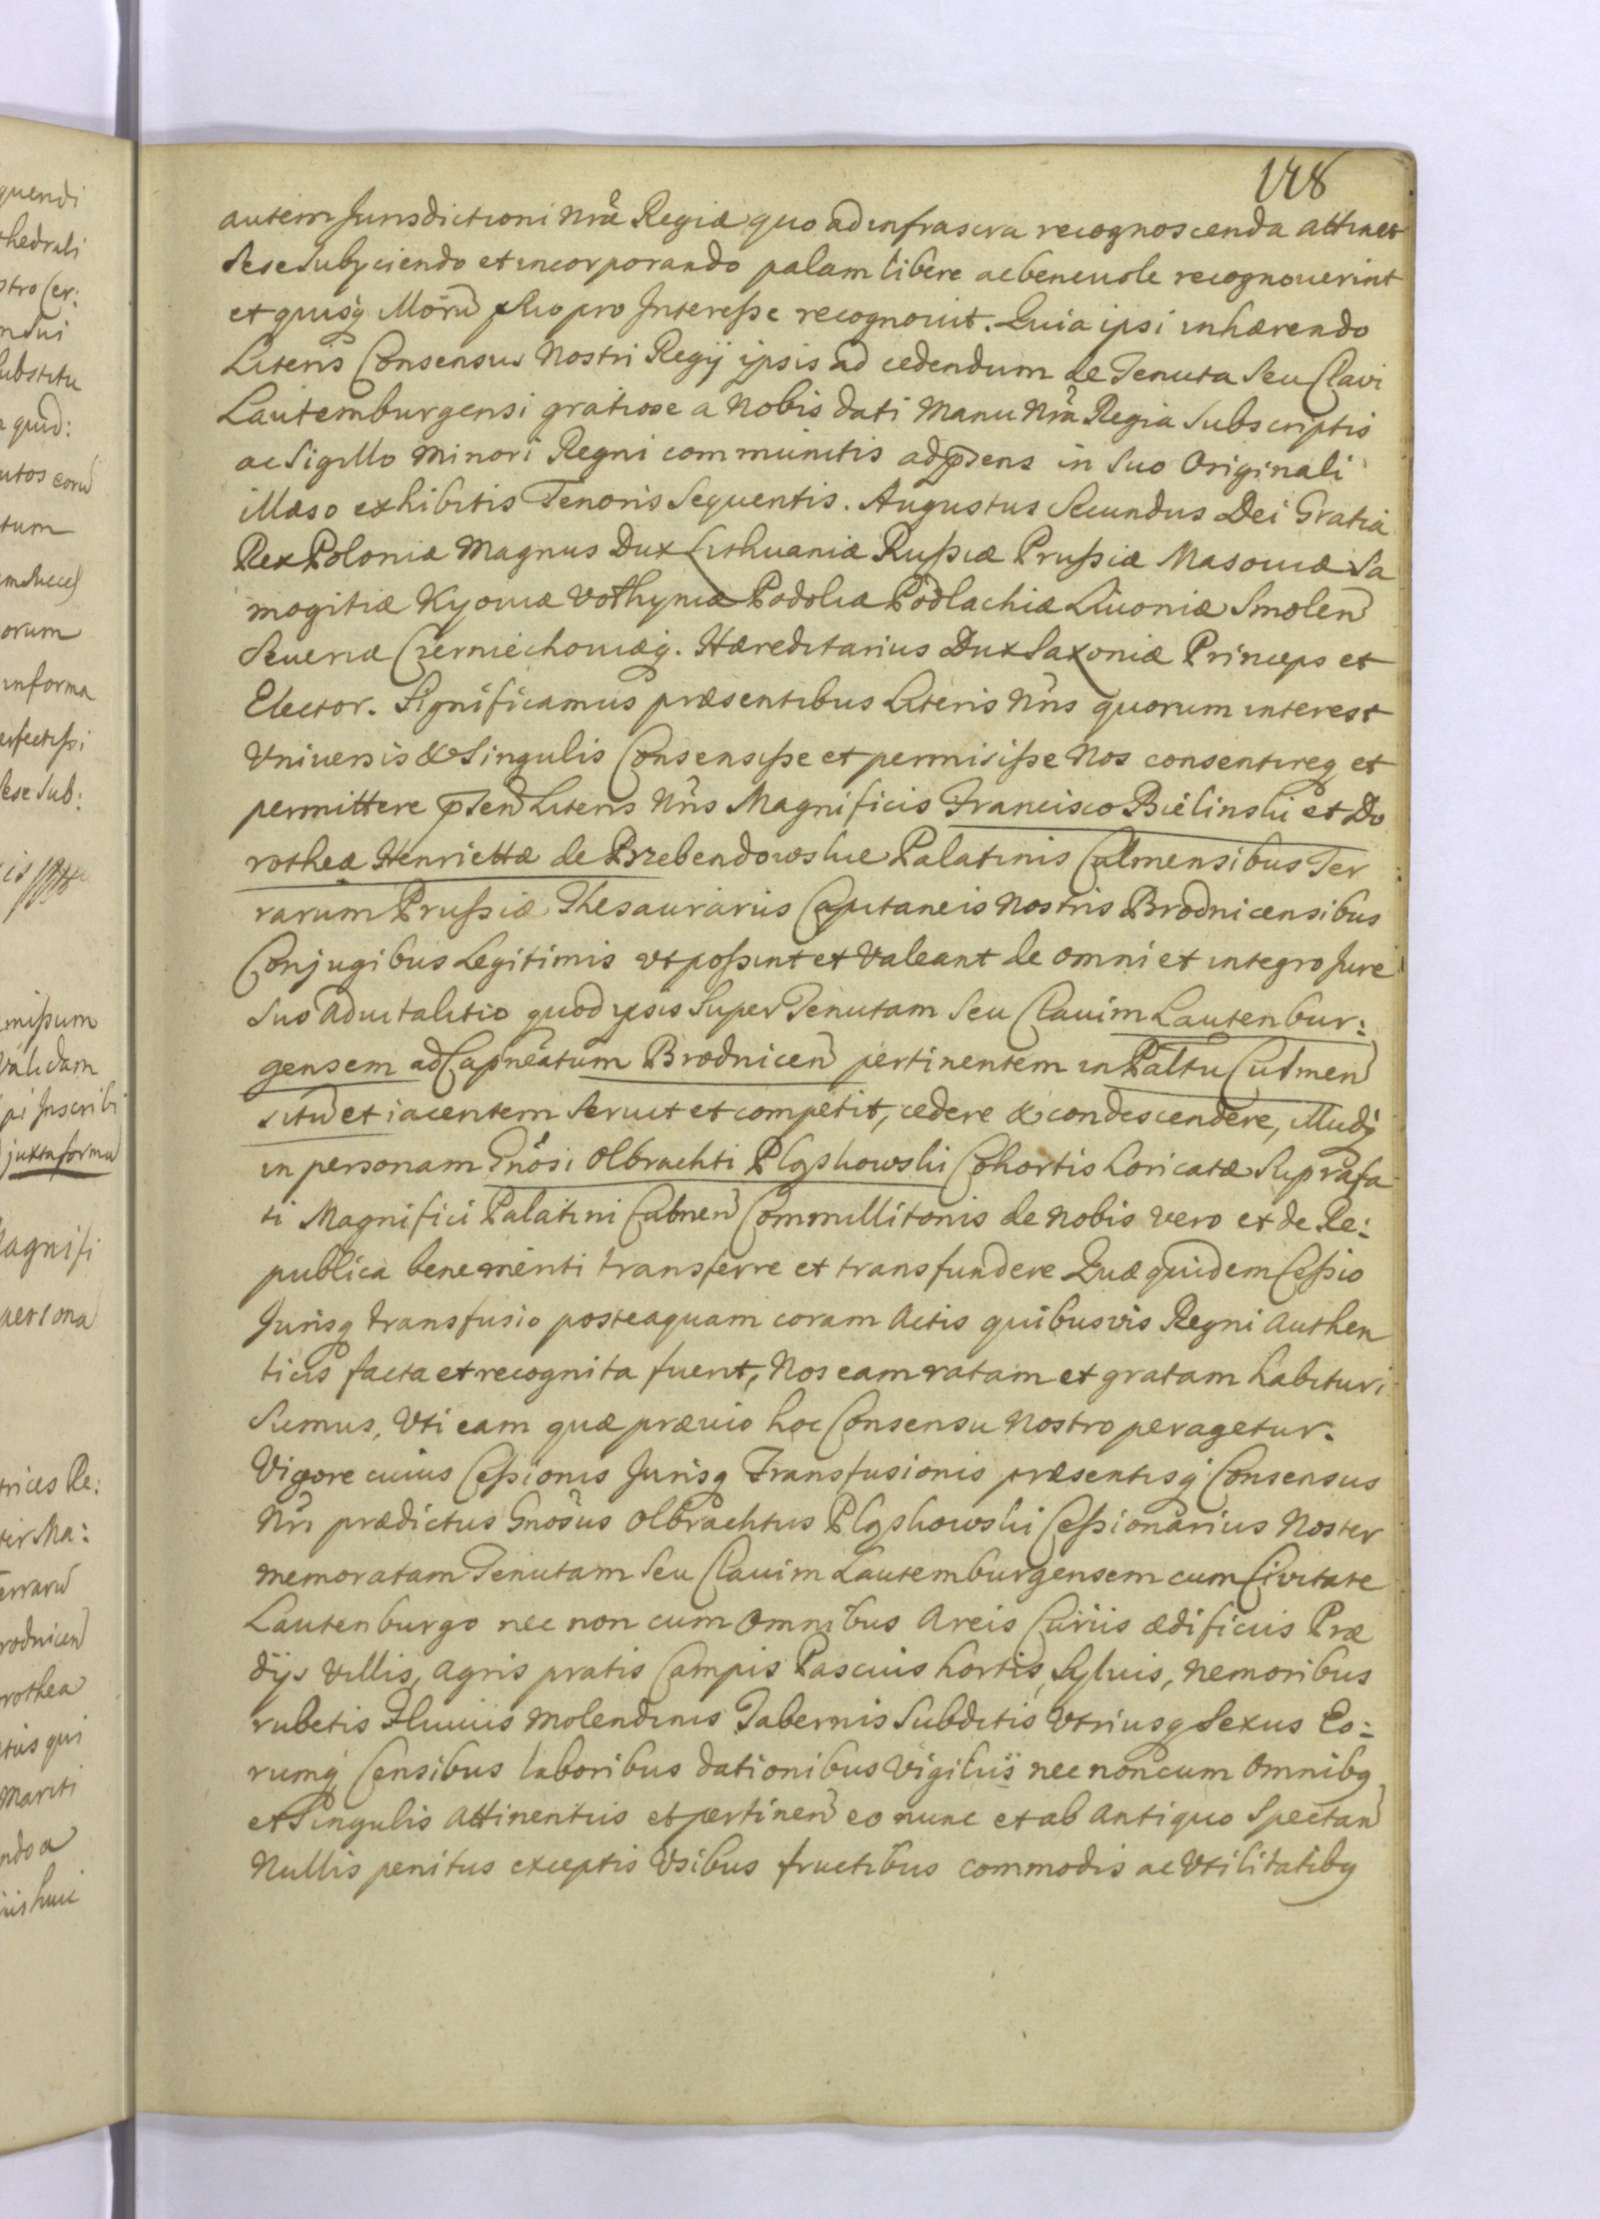 148
autem Jurisdictioni Nrã Regiæ quo ad infrascra recognoscenda attinet
sese subyciendo et incorporando palam libere ac beneuole recognouerint
et quisq Morũ pro Interesse recognouit. Quia ipsi inhærendo
Literis Consensus Nostri Regij ipsis ad cedendum de Tenuta seu Claui
Lautemburgensi gratiose a Nobis dati Manu Nrã Regia subscriptis
ac Sigillo minori Regni communitis ad psens in suo Originali
illæso exhibitis Tenoris sequentis. Augustus Secundus Dei Gratia
Rex Poloniæ Magnus Dux Lithuaniæ Russiæ Prussiæ Masouiæ Sa
mogitiæ Kyouiæ Volhyniæ Podoliæ Podlachiæ Liuoniæ Smolen
Seueriæ Czerniechouiæq. Hæreditarius Dux Saxoniæ Princeps et
Elector. Significamus præsentibus Literis Nris quorum interest
Vniuersis & Singulis Consensisse et permisisse Nos consentireq et
permittere psen Literis Nris Magnificis Francisco Bielinski et Do
rotheæ Henriettæ de Przebendowskie Palatinis Culmensibus Ter
rarum Prussiæ Thesaurariis Capitaneis Nostris Brodnicensibus
Conjugibus Legitimis vt possint et valeant de omni et integro Jure
suo aduitalitio quod ipsis super Tenutam seu Clauim Lautenbur:
gensem ad Capneatum Brodnicen pertinentem in Paltu Culmen
sitũ et iacentem seruit et competit, cedere & condescendere, illudq
in personam Gnosi Olbrachti Pląskowski Cohortis Loricatæ suprafa
ti Magnifici Palatini Culmen Commillitonis de nobis vero et de Re:
publica benemeriti transferre et transfundere Quæ quidem Cessio
Jurisq transfusio posteaquam coram Actis quibusvis Regni Authen
ticis facta et recognita fuerit, Nos eam ratam et gratam habituri
sumus, vti eam quæ præuio hoc Consensu Nostro peragetur.
Vigore cuius Cessionis Jurisq Transfusionis præsentisq Consensus
Nri prædictus Gnosus Olbrachtus Pląskowski Cessionarius Noster
memoratam Tenutam seu Clauim Lautemburgensem cum Civitate
Lautenburgo nec non cum omnibus Areis Curiis ædificiis Præ
dijs villis, agris pratis Campis Pascuis hortis, syluis, nemoribus
rubetis Fluuiis molendinis Tabernis Subditis vtriusq sexus Eo:
rumq Censibus laboribus dationibus vigiliis nec non cum omnibq
et singulis attinentiis et pertinen eo nunc et ab antiquo spectan
Nullis penitus exceptis vsibus fructibus commodis ac vtilitatibq